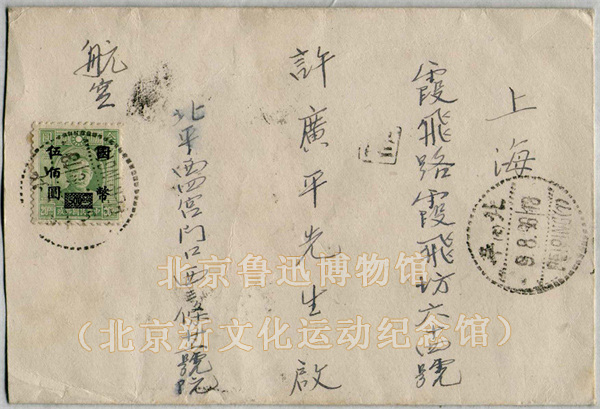 上海
霞飛路霞飛坊六十四號
許廣平先生啟
北平西四宮門口西三條廿一號
航空
國幣
伍佰圓
500
北京鲁迅博物馆
（北京新文化运动纪念馆）